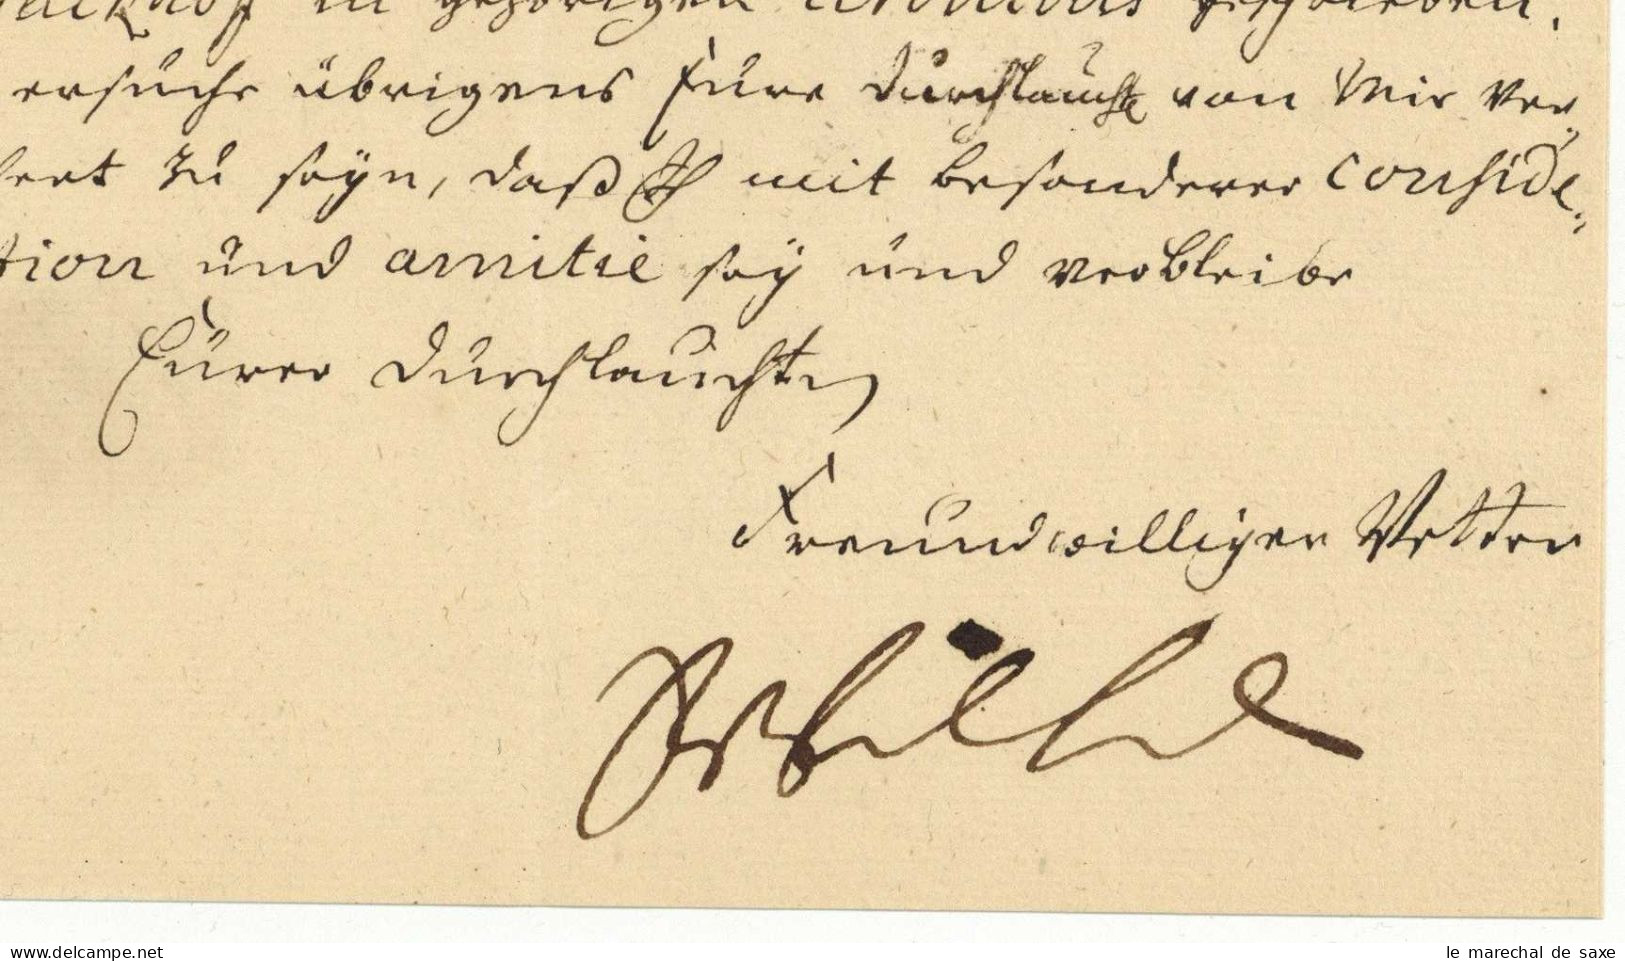 in gehörigen
ersuche übrigens Eure Durchlaucht von Mir ver
sert zu seÿn, daß Ich mit besonderer conside,,
tion und amitie seÿ und verbleibe
Eurer Durchlaucht
Freundwilliger Vetter
delcampe.net
le marechal de saxe